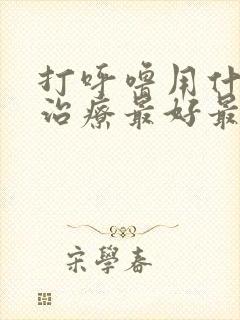 打呼噜用什
治疗最好最
宋學春